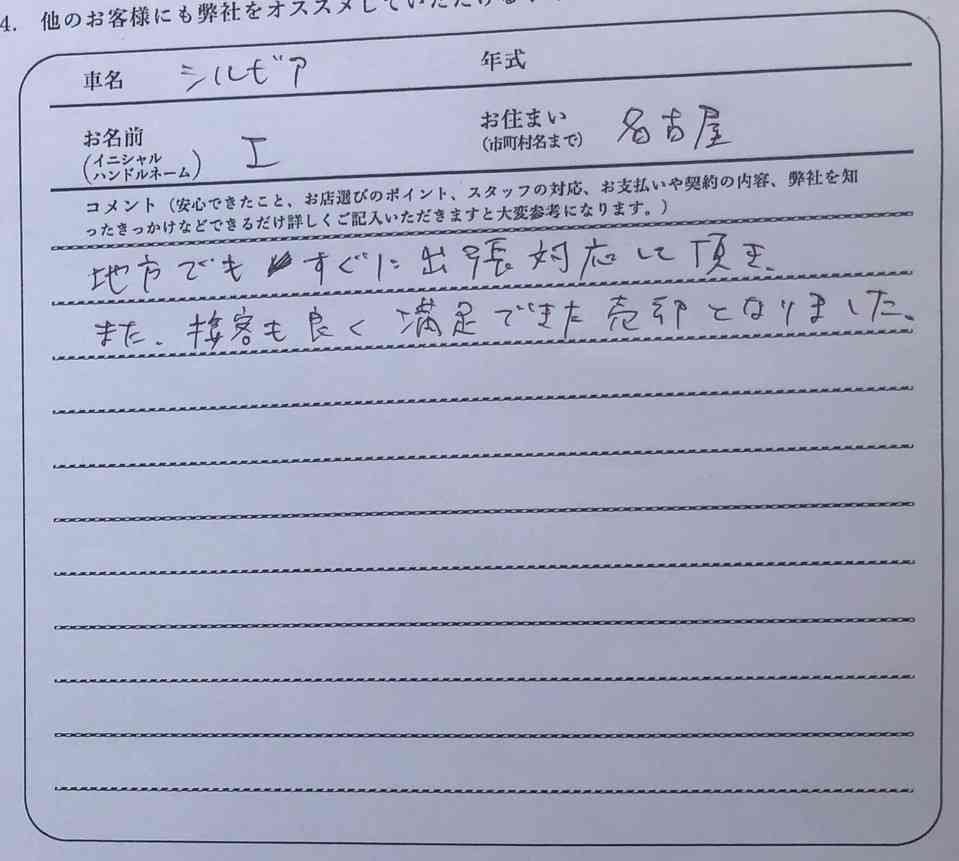 4. 他のお客様にも弊社をオススメしていただける
車名 シルビア 年式
お名前 (イニシャル ハンドルネーム) I お住まい (市町村名まで) 名古屋
コメント（安心できたこと、お店選びのポイント、スタッフの対応、お支払いや契約の内容、弊社を知
ったきっかけなどできるだけ詳しくご記入いただきますと大変参考になります。）
地方でもすぐに出張対応して頂き、
また、接客も良く満足できた売却となりました。